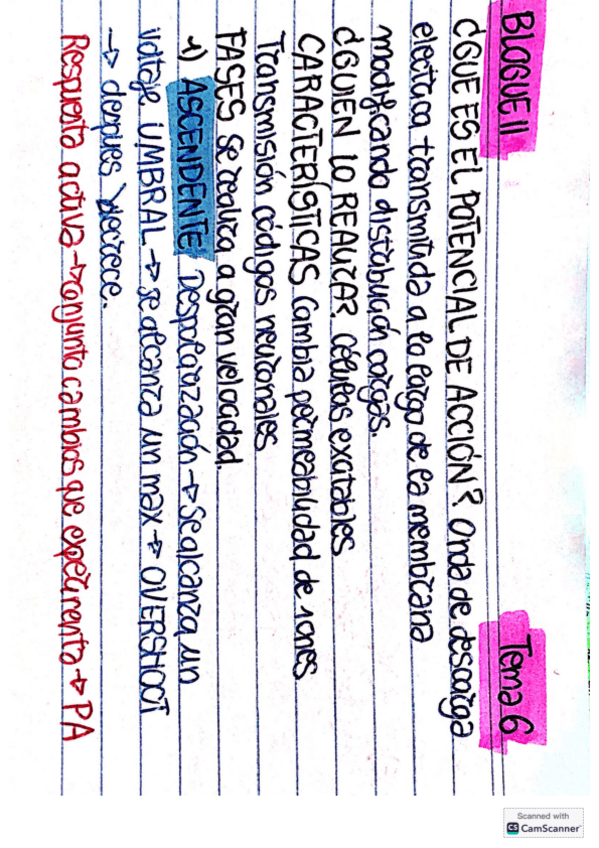 BLOQUE II Tema 6
¿QUE ES EL POTENCIAL DE ACCIÓN? Onda de descarga
electrica transmitida a lo largo de la membrana
modificando distribución cargas.
¿QUIEN LO REALIZA? células excitables
CARACTERÍSTICAS Cambia permeabilidad de iones
Transmisión códigos neuronales
FASES se realiza a gran velocidad.
1) ASCENDENTE Despolarización → Se alcanza un
voltaje UMBRAL → se alcanza un max → OVERSHOOT
→ después decrece.
Respuesta activa → conjunto cambios que experimenta → PA
Scanned with
CS CamScanner